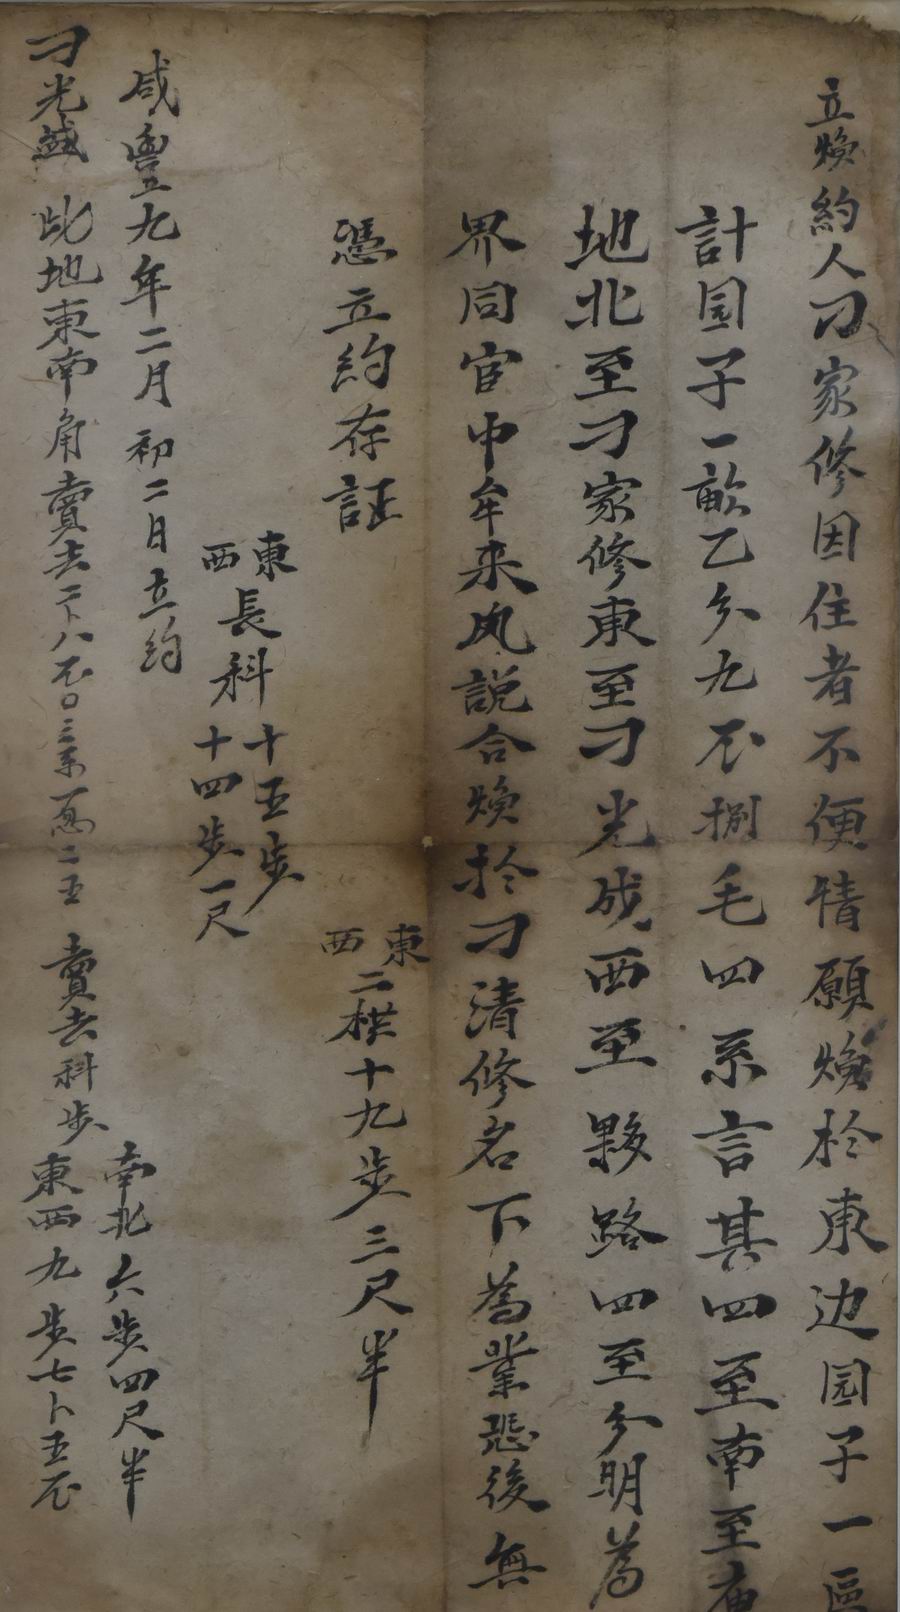 立煥約人刁家修因住者不便情願煥扵東边园子一區
計园子一畝乙分九厘捌毛四系言其四至南至庙
地北至刁家修東至刁光成西至夥路四至分明為
界同官中牟来凤說合煥扵刁清修名下為業恐後無
憑立約存証
東西二横十九步三尺半
東西長科十五步十四步一尺
咸豐九年二月初二日立約
刁光盛此地東南角賣去二卜八厘〇三系 二五賣去科步南北六步四尺半東西九步七卜五厘